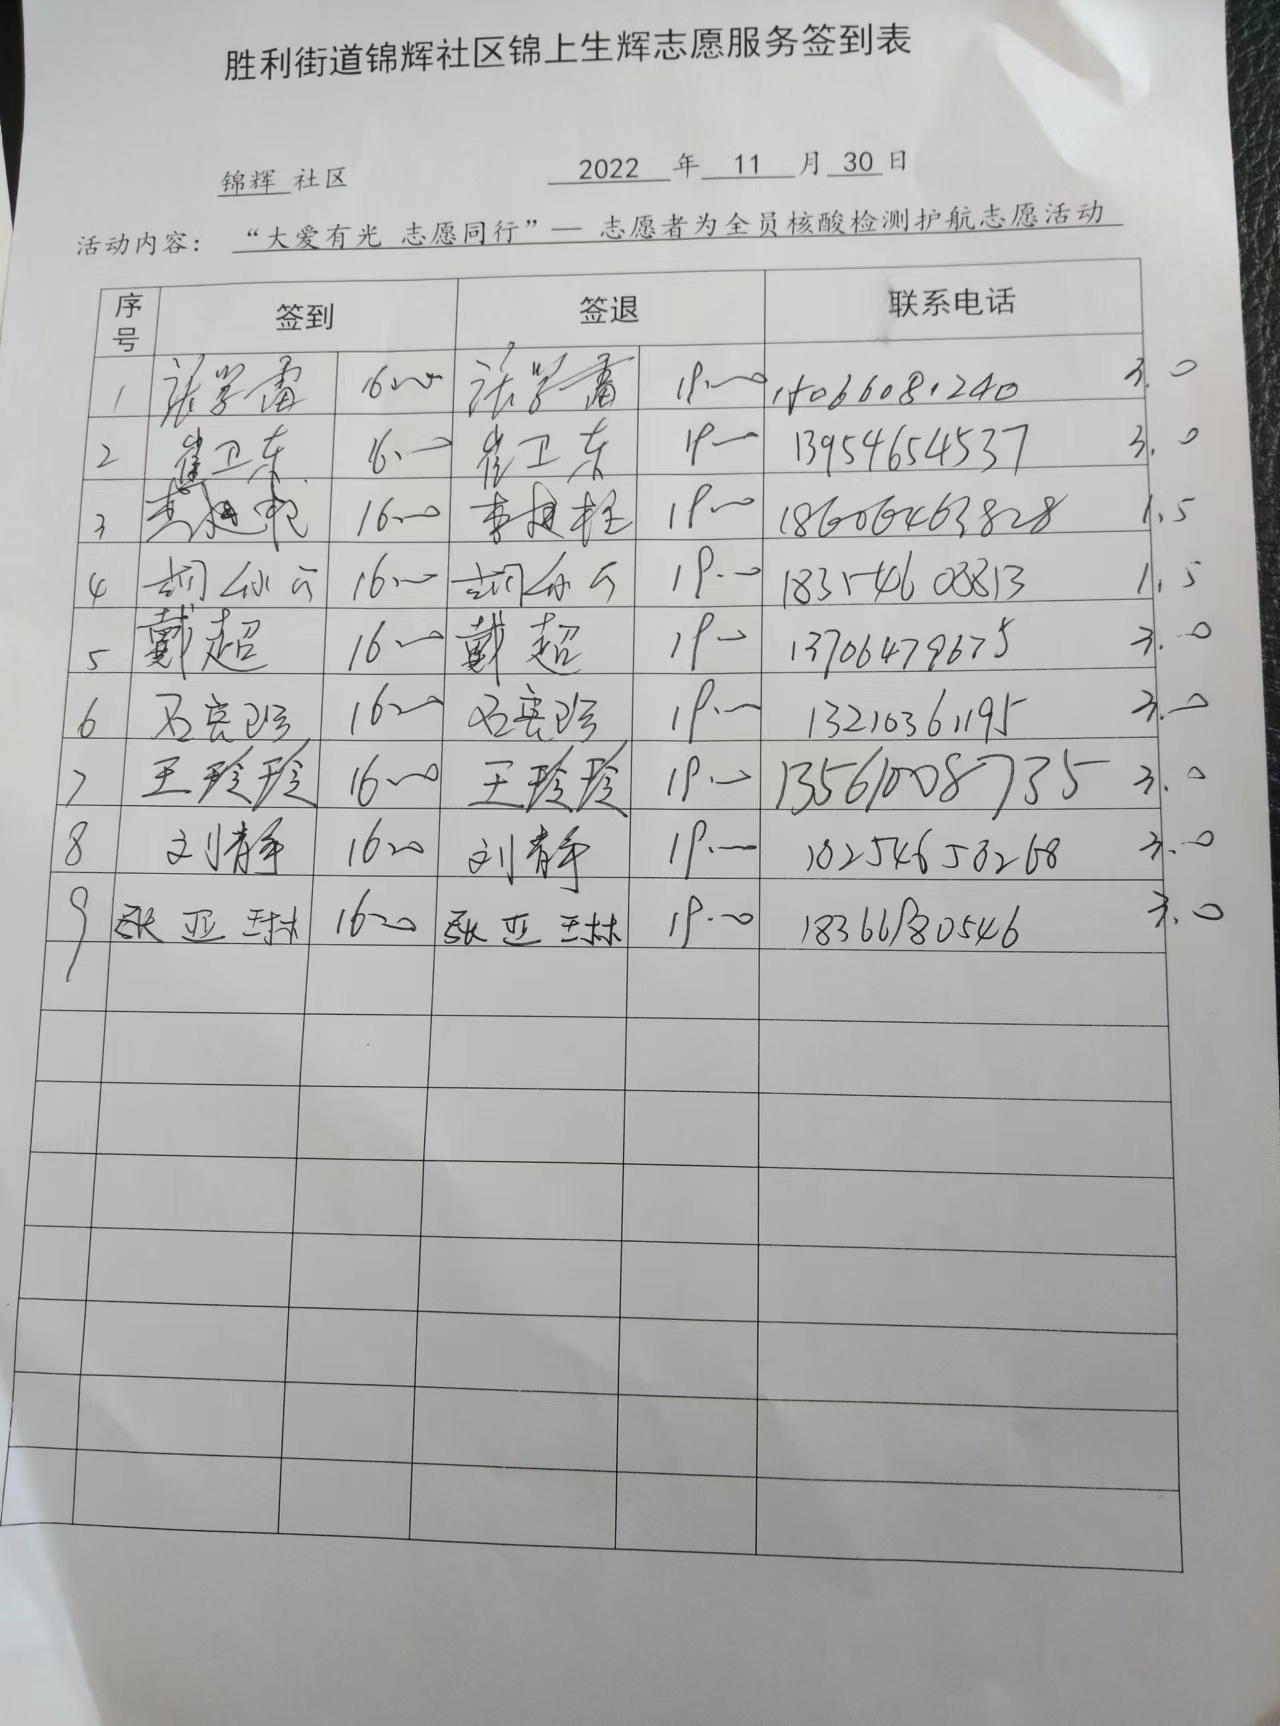 胜利街道锦辉社区锦上生辉志愿服务签到表
锦辉 社区 2022 年 11 月 30 日
活动内容： “大爱有光 志愿同行”— 志愿者为全员核酸检测护航志愿活动
序号 签到 签退 联系电话
1 16:00 19:00 3.0
2 崔卫东 16:00 崔卫东 19:00 13954654537 3.0
3 16:00 19:00 18606463828 1.5
4 16:00 19:00 18354608813 1.5
5 戴超 16:00 戴超 19:00 13706479675 3.0
6 16:00 19:00 13210361195 3.0
7 王玲玲 16:00 王玲玲 19:00 13561008735 3.0
8 刘静 16:00 刘静 19:00 3.0
9 张亚琳 16:00 张亚琳 19:00 18366180546 3.0